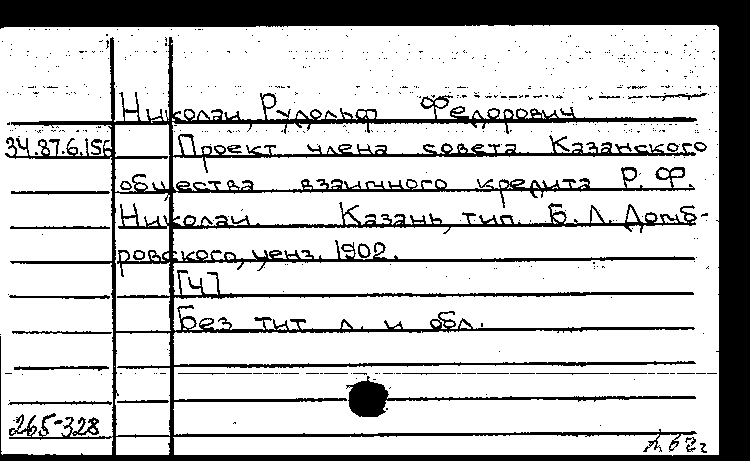 Николаи, Рудольф Федорович
34.87.6.156 Проект члена совета Казанского
общества взаимного кредита Р. Ф.
Николаи. Казань, тип. Б. Л. Домб-
ровского, ценз. 1902.
[4]
Без тит. л. и обл.
265-328